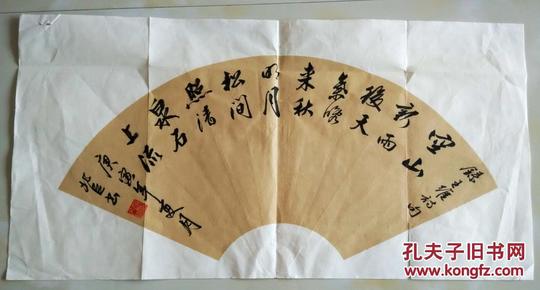 錄王維詩句
空山
新雨
後天
氣晚
来秋
明月
松间
照清
泉石
上流
庚寅年夏月
书
孔夫子旧书网
www.kongfz.com